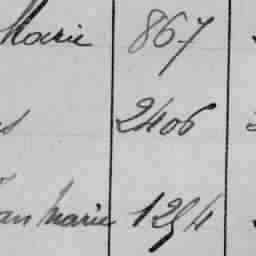 Marie 867
2406
Jean Marie 1254